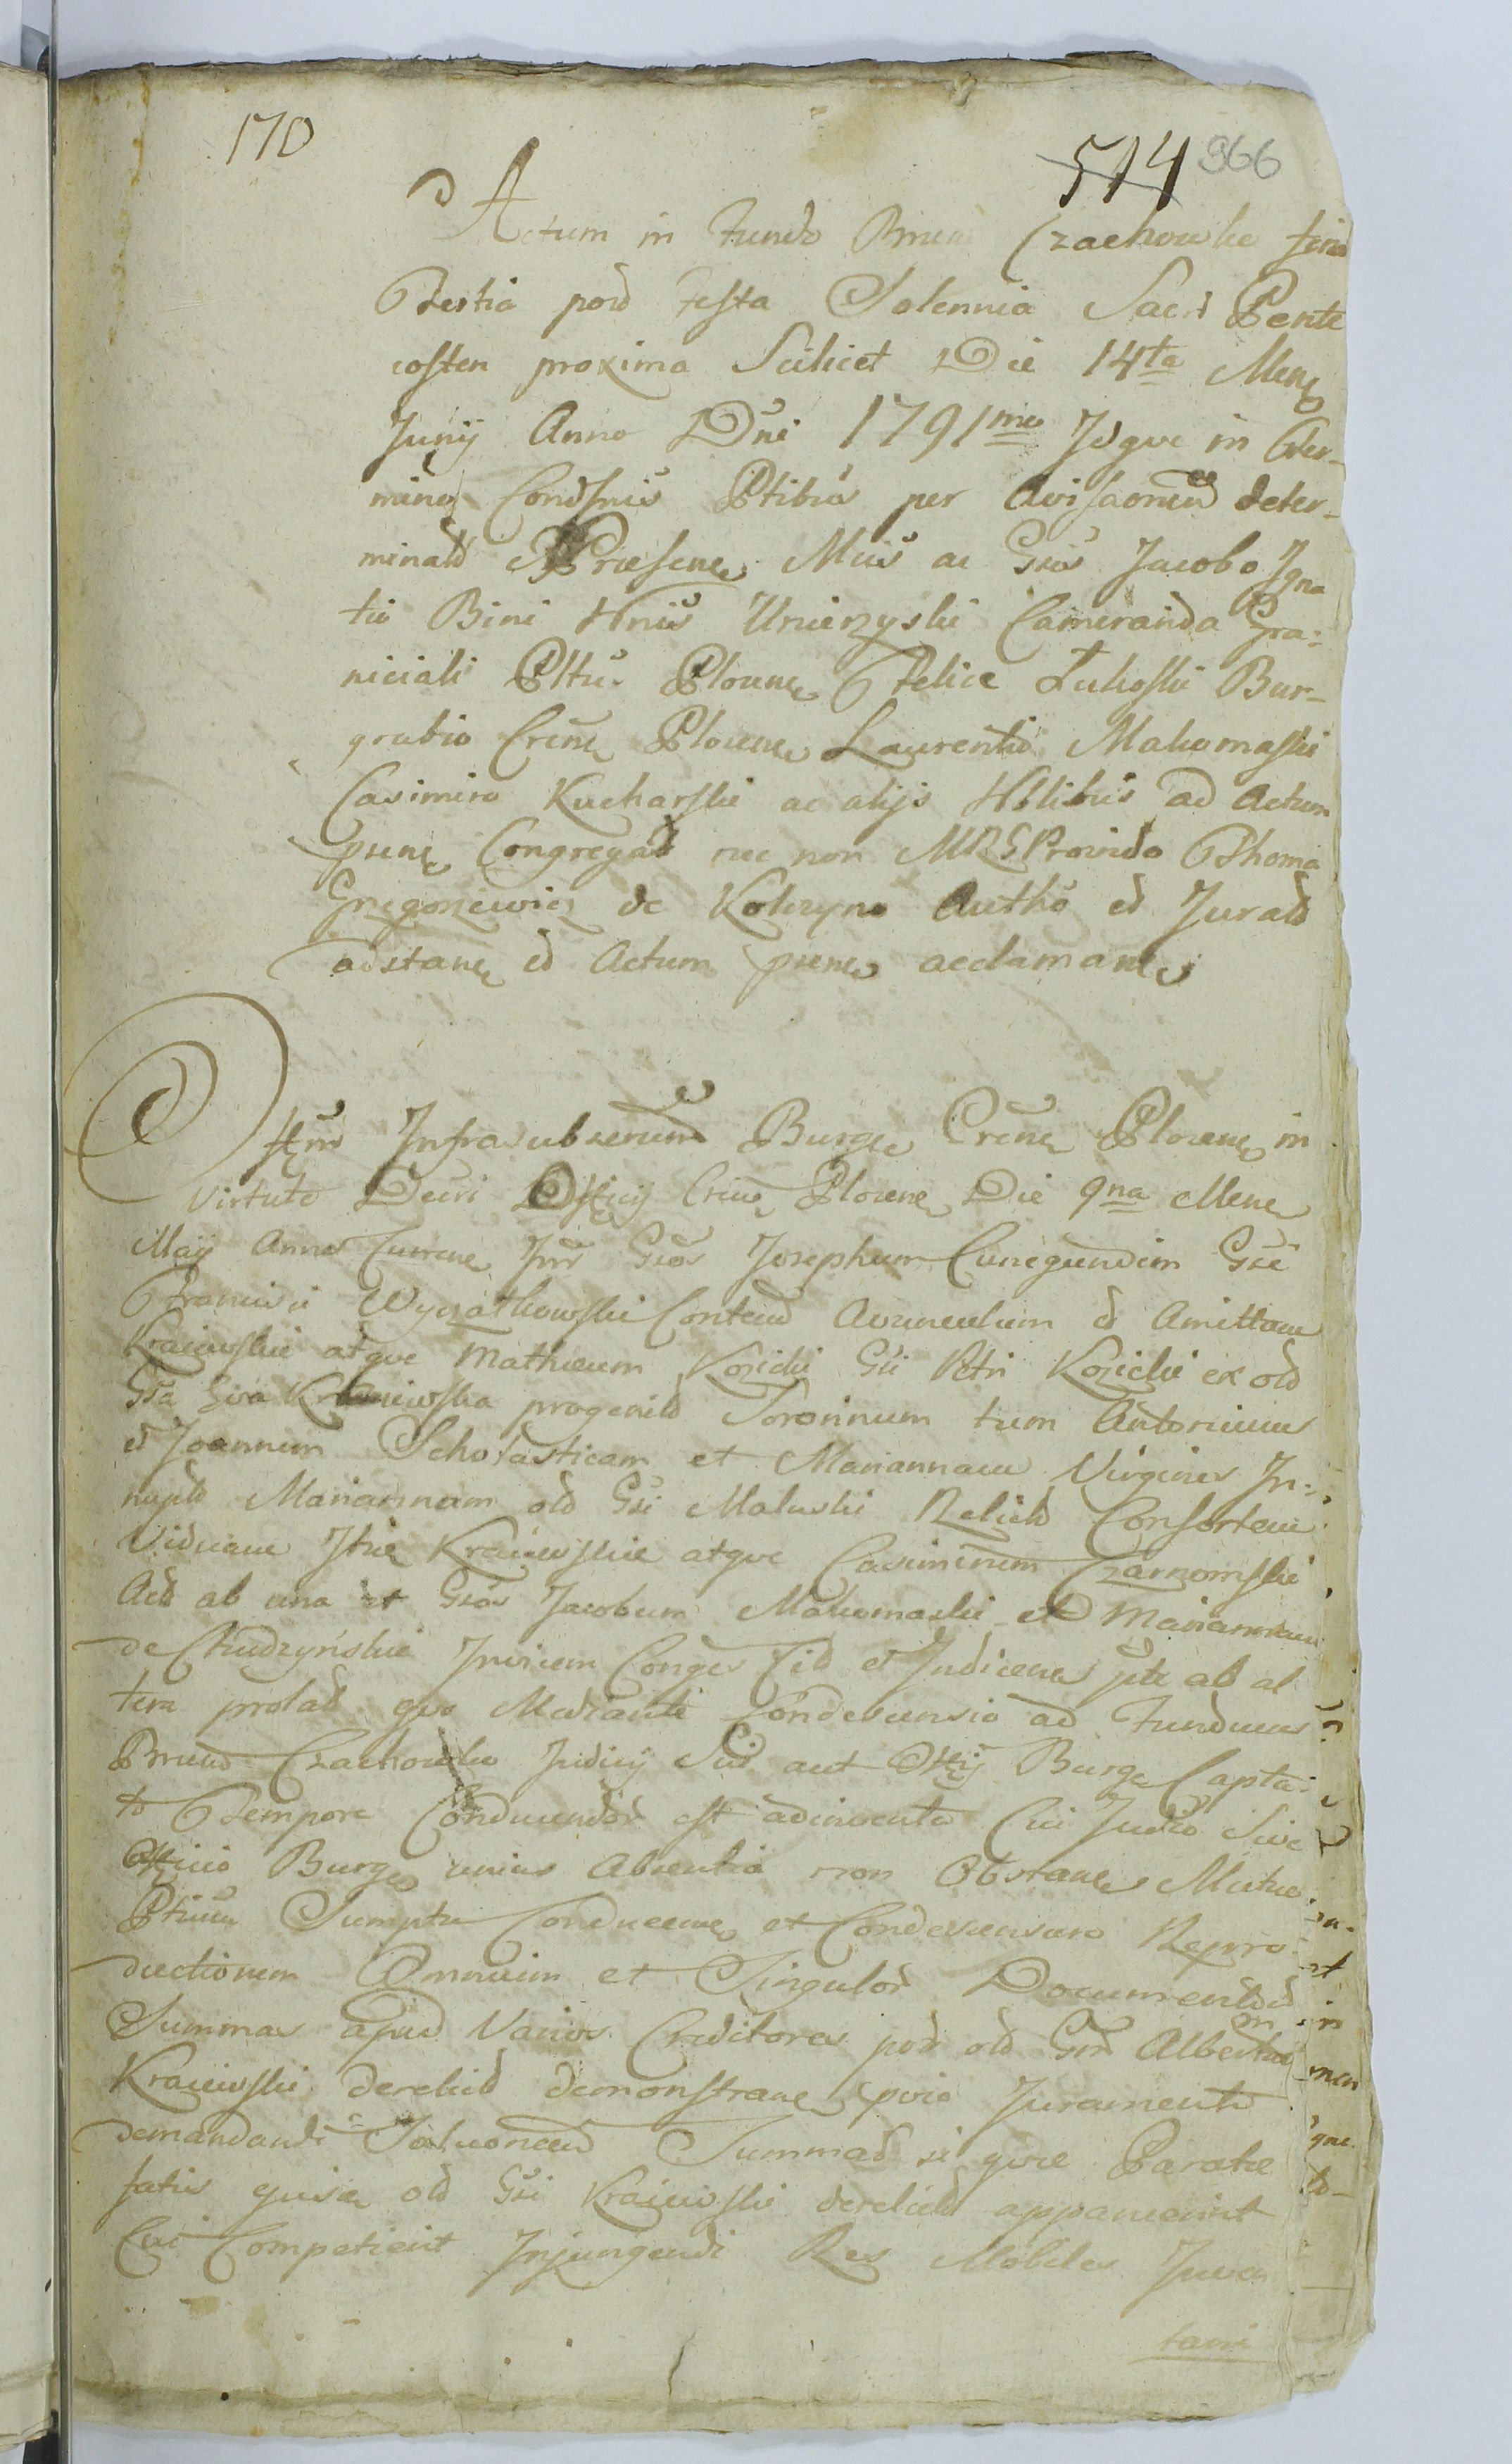 170
514 966
Actum in Fundo Bnum Czachowke feria
Tertia post Festa Solennia Sacri Pente
costen proxima Scilicet Die 14ta Mens
Junij Anno Dni 1791mo Idque in Ter-
mino Condsnis Ptibus per Avisaonem deter-
minato Praesene Mcis ac Gsis Jacobo Igna
tio Bini Hnis Unierzyski Camerando Gra-
niciali Pltus Plocene Felice Łukoski Bur-
grabio Crens Plocene Laurentio Makomaski
Casimiro Kucharski ac alijs Nblibus ad Actum
psene Congregatis nec non Provido Thoma
Grzegorzewicz de Kolczyno Autho et Jurato
adstane et Actum psene acclamane
Infrascubserum Burge Crens Plocene in
Virtute Decri Officij Crens Plocene Die 9na Mene
Maij Anno Currene Inr Gsos Josephum Cunegundim Gsi
Francisci Wyczałkowski Contem Avunculum et Amittam
Kraiewskie atque Mathaeum Kozicki Gsi Petri Kozicki ex olim
Gsa Eva Kraiewska progenito Sororinum tum Antonium
et Joannem Scholasticam et Mariannam Virgines In-
nupta Mariannam old Gsi Maluski Relicta Consortem
Viduam Kraiewskie atque Casimirum Czarnomski
Act ab una et Gsos Jacobum Makomaski et Mariannam
de Chudzyńskie Invicem Conges Cit et Judicene pte ab al
tera prolat quo Mediante Condescensio ad Fundum
Bnum Czachowke Judicij Sui aut Officij Burge Capta
to Tempore Conducendor est adinventa Cui Judicio Sive
Officio Burge unius Absentia non Obstane Mutuo
Ptium Sumptu Conducene et Condescensuro Repro-
ductionem Omnium et Singulor Documentor
Summas apud Varios Creditores post old Gsm Albertum
Kraiewski derelict demonstrane pvio Juramento
demandandi Summar si quae Paratae
satis old Gsi Kraiewski derelict apparuerint
Cui Competierit Injungendi Res Mobiles Inven
tari